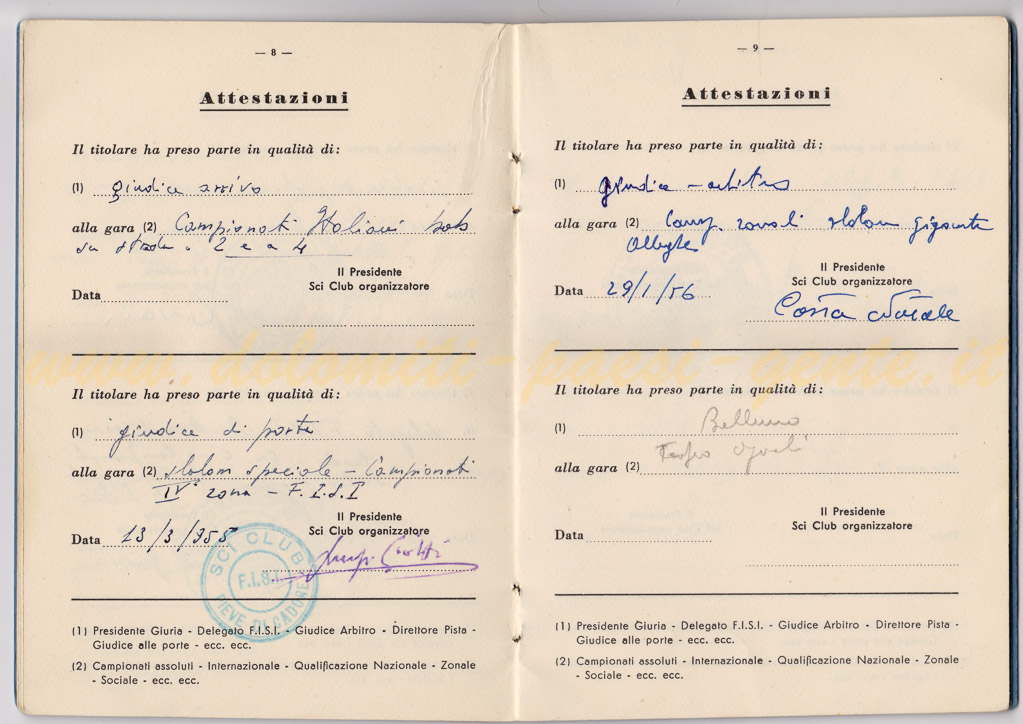 — 8 —
Attestazioni
Il titolare ha preso parte in qualità di:
(1) giudice arrivo
alla gara (2) Campionati Italiani bob
su strada a 2 e a 4
Il Presidente
Sci Club organizzatore
Data
Il titolare ha preso parte in qualità di:
(1) giudice di porta
alla gara (2) slalom speciale - Campionati
IVª zona - F.I.S.I
Il Presidente
Sci Club organizzatore
Data 13/3/955
SCI CLUB
F.I.S.I.
PIEVE DI CADORE
(1) Presidente Giuria - Delegato F.I.S.I. - Giudice Arbitro - Direttore Pista -
Giudice alle porte - ecc. ecc.
(2) Campionati assoluti - Internazionale - Qualificazione Nazionale - Zonale
- Sociale - ecc. ecc.
— 9 —
Attestazioni
Il titolare ha preso parte in qualità di:
(1) giudice - arbitro
alla gara (2) Camp. zonali slalom gigante
Il Presidente
Sci Club organizzatore
Data 29/1/56
Costa Natale
Il titolare ha preso parte in qualità di:
(1) Belluno
alla gara (2) Trofeo
Il Presidente
Sci Club organizzatore
Data
(1) Presidente Giuria - Delegato F.I.S.I. - Giudice Arbitro - Direttore Pista -
Giudice alle porte - ecc. ecc.
(2) Campionati assoluti - Internazionale - Qualificazione Nazionale - Zonale
- Sociale - ecc. ecc.
www.dolomiti-paesi-gente.it